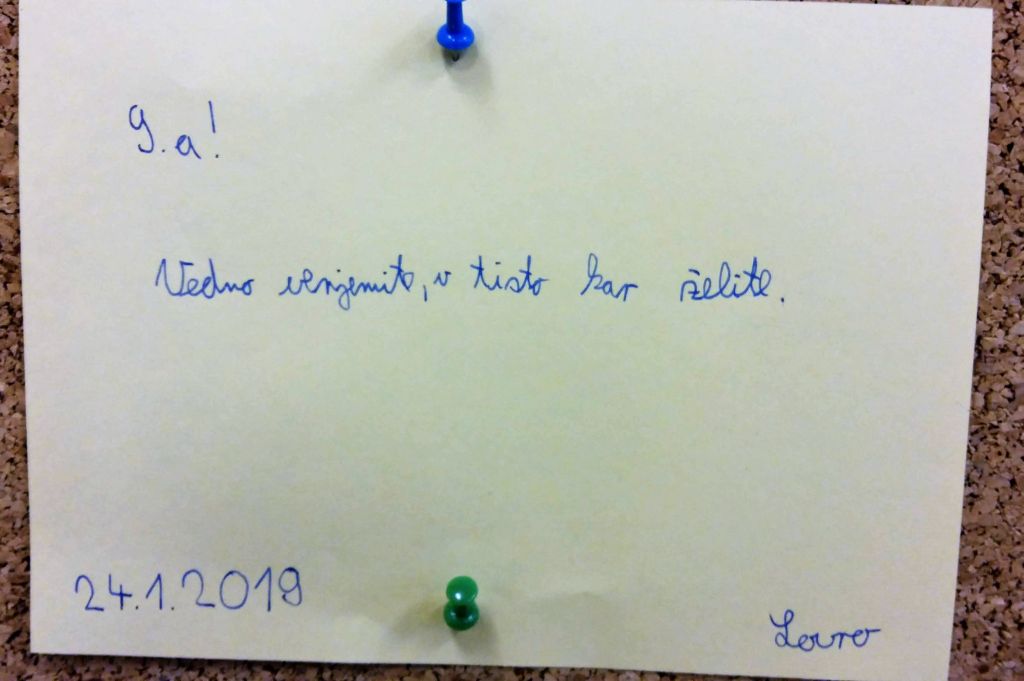 9.a!
Vedno verjemite, v tisto kar želite.
24.1.2019
Lovro